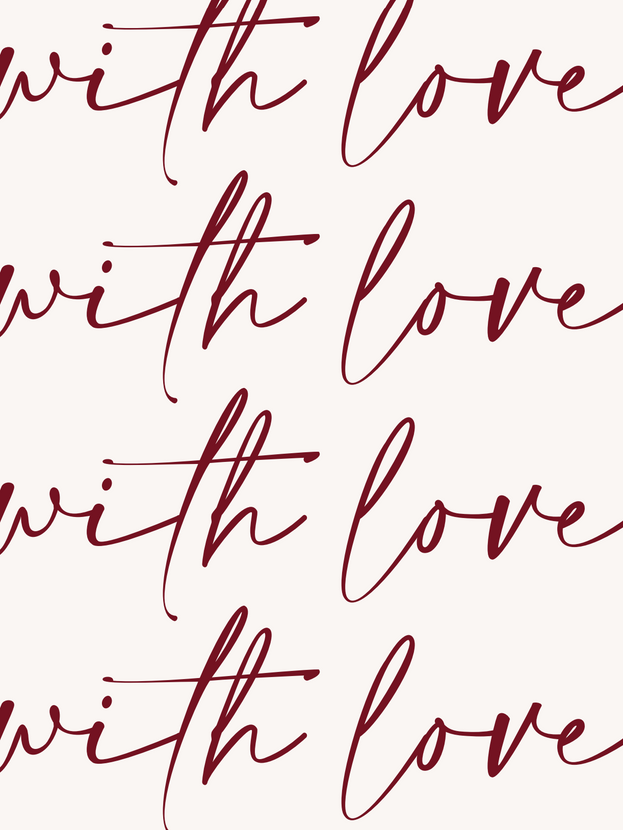 with love
with love
with love
with love